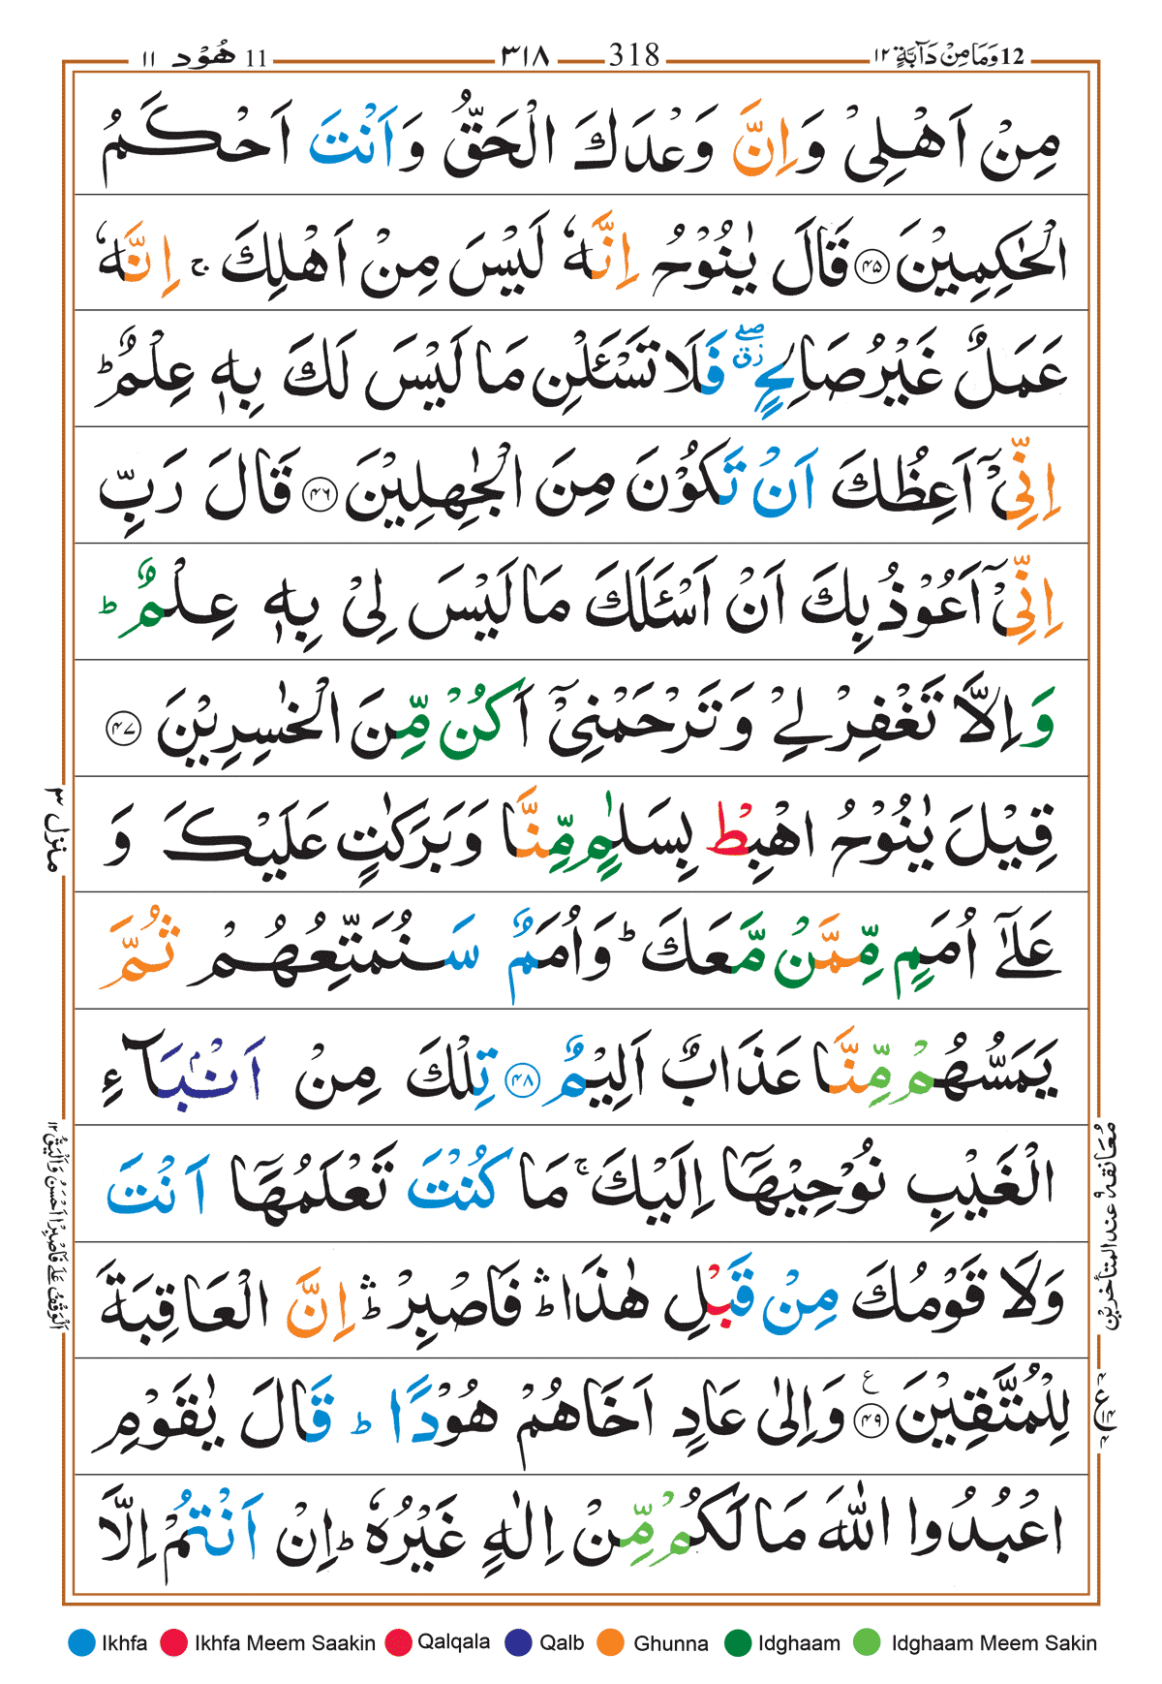 12 وَمَا مِنْ دَآبَّةٍ ١٢ 318 ٣١٨ 11 هُوْد ١١
مِنْ اَهْلِیْ وَاِنَّ وَعْدَكَ الْحَقُّ وَاَنْتَ اَحْكَمُ
الْحٰكِمِیْنَ ﴿۴۵﴾ قَالَ یٰنُوْحُ اِنَّهٗ لَیْسَ مِنْ اَهْلِكَ ۚ اِنَّهٗ
عَمَلٌ غَیْرُ صَالِحٍ ۖ زق فَلَا تَسْـَٔلْنِ مَا لَیْسَ لَكَ بِهٖ عِلْمٌ ؕ
اِنِّیْۤ اَعِظُكَ اَنْ تَكُوْنَ مِنَ الْجٰهِلِیْنَ ﴿۴۶﴾ قَالَ رَبِّ
اِنِّیْۤ اَعُوْذُ بِكَ اَنْ اَسْـَٔلَكَ مَا لَیْسَ لِیْ بِهٖ عِلْمٌ ؕ
وَ اِلَّا تَغْفِرْ لِیْ وَ تَرْحَمْنِیْۤ اَكُنْ مِّنَ الْخٰسِرِیْنَ ﴿۴۷﴾
قِیْلَ یٰنُوْحُ اهْبِطْ بِسَلٰمٍ مِّنَّا وَبَرَكٰتٍ عَلَیْكَ وَ
عَلٰۤی اُمَمٍ مِّمَّنْ مَّعَكَ ؕ وَاُمَمٌ سَنُمَتِّعُهُمْ ثُمَّ
یَمَسُّهُمْ مِّنَّا عَذَابٌ اَلِیْمٌ ﴿۴۸﴾ تِلْكَ مِنْ اَنْۢبَآءِ
الْغَیْبِ نُوْحِیْهَاۤ اِلَیْكَ ۚ مَا كُنْتَ تَعْلَمُهَاۤ اَنْتَ
وَلَا قَوْمُكَ مِنْ قَبْلِ هٰذَا ۛؕ فَاصْبِرْ ۛؕ اِنَّ الْعَاقِبَةَ
لِلْمُتَّقِیْنَ ﴿۴۹﴾ ع وَاِلٰی عَادٍ اَخَاهُمْ هُوْدًا ؕ قَالَ یٰقَوْمِ
اعْبُدُوا اللّٰهَ مَا لَكُمْ مِّنْ اِلٰهٍ غَیْرُهٗ ؕ اِنْ اَنْتُمْ اِلَّا
منزل ٣
معانقة عند المتأخرين
Ikhfa Ikhfa Meem Saakin Qalqala Qalb Ghunna Idghaam Idghaam Meem Sakin